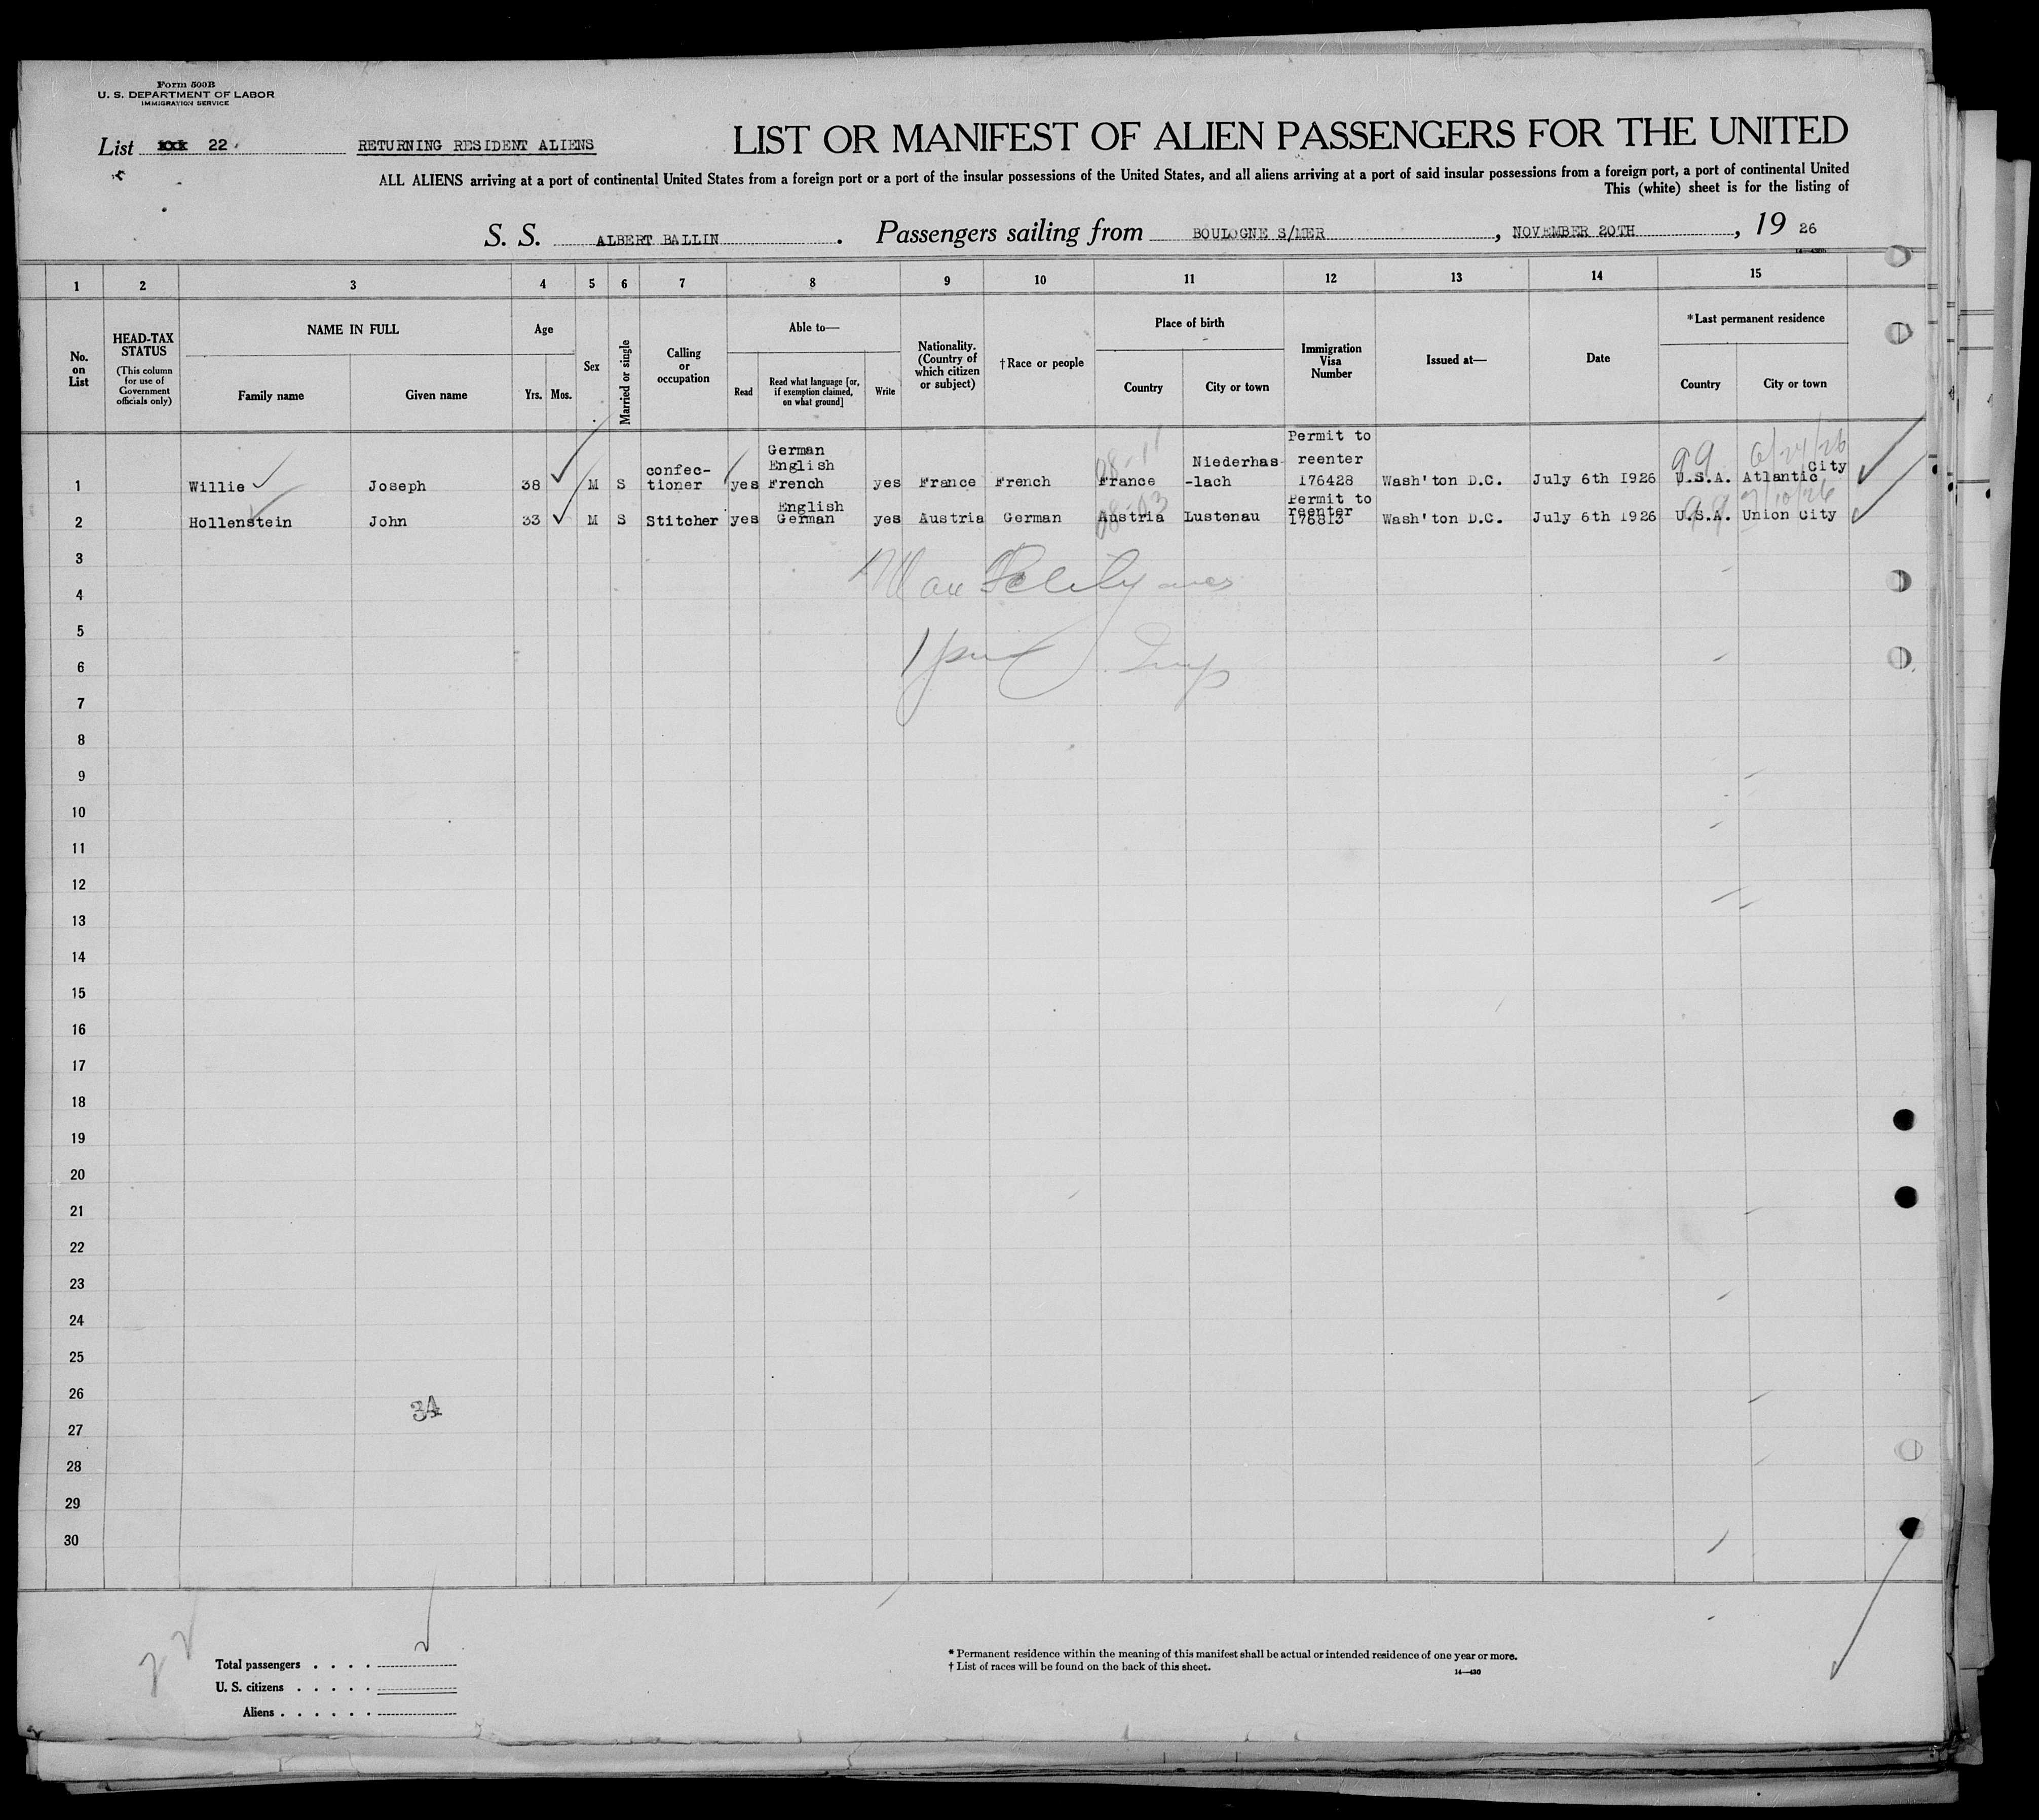 Form 500B
U. S. DEPARTMENT OF LABOR
IMMIGRATION SERVICE
List xxx 22. RETURNING RESIDENT ALIENS
LIST OR MANIFEST OF ALIEN PASSENGERS FOR THE UNITED
ALL ALIENS arriving at a port of continental United States from a foreign port or a port of the insular possessions of the United States, and all aliens arriving at a port of said insular possessions from a foreign port, a port of continental United
This (white) sheet is for the listing of
S. S. ALBERT BALLIN. Passengers sailing from BOULOGNE S/MER, NOVEMBER 20TH, 19 26
1 2 3 4 5 6 7 8 9 10 11 12 13 14 15
No. on List
HEAD-TAX STATUS
(This column for use of Government officials only)
NAME IN FULL
Family name Given name
Age
Yrs. Mos.
Sex
Married or single
Calling or occupation
Able to—
Read
Read what language [or, if exemption claimed, on what ground]
Write
Nationality. (Country of which citizen or subject)
†Race or people
Place of birth
Country City or town
Immigration Visa Number
Issued at—
Date
*Last permanent residence
Country City or town
1 Willie Joseph 38 M S confec-tioner yes German English French yes France French 08-11 France Niederhas-lach Permit to reenter 176428 Wash'ton D.C. July 6th 1926 99 U.S.A. Atlantic City 6/24/26
2 Hollenstein John 33 M S Stitcher yes English German yes Austria German 08-03 Austria Lustenau Permit to reenter 176813 Wash'ton D.C. July 6th 1926 99 U.S.A. Union City
3
4
5
6
7
8
9
10
11
12
13
14
15
16
17
18
19
20
21
22
23
24
25
26
34
27
28
29
30
Total passengers . . . .
U. S. citizens . . . . .
Aliens . . . . . .
* Permanent residence within the meaning of this manifest shall be actual or intended residence of one year or more.
† List of races will be found on the back of this sheet.
14—430